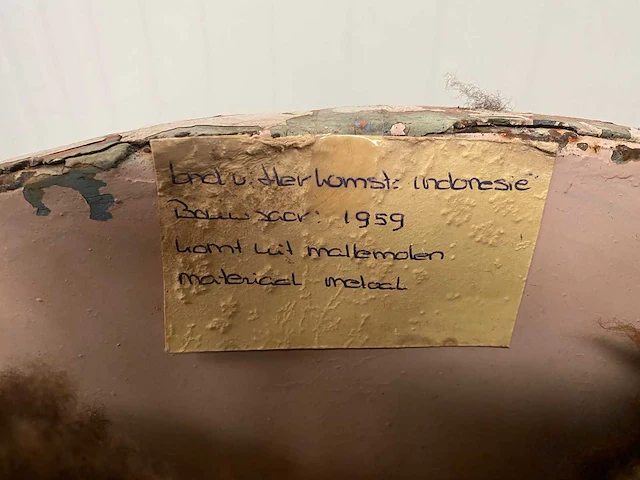 land v. Herkomst: Indonesië
Bouwjaar: 1959
komt uit mallemolen
materiaal metaal